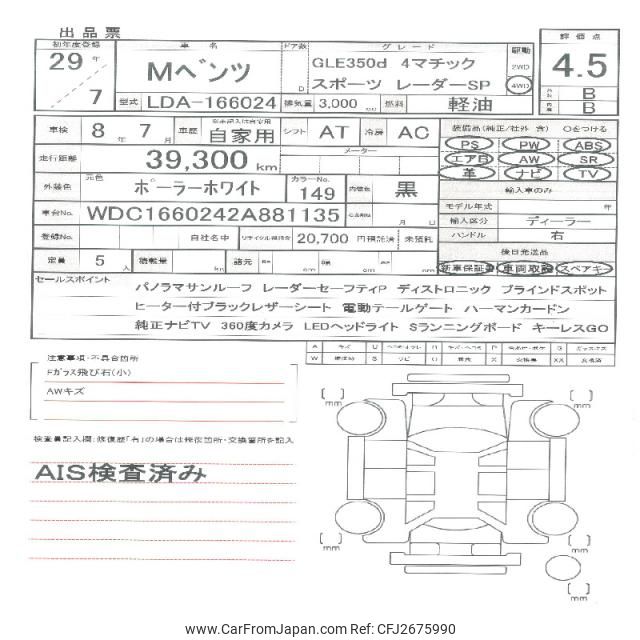 出品票
初年度登録 車名 ドア数 グレード 駆動 評価点
29年 Mベンツ GLE350d 4マチック 2WD 4.5
7 D スポーツ レーダーSP 4WD B
型式 LDA-166024 排気量 3,000 cc 燃料 軽油 B
車検 8年 7月 車歴 自家用 シフト AT 冷房 AC 装備品(純正/社外 含) ○をつける
PS PW ABS
走行距離 39,300 km メーター エアB AW SR
革 ナビ TV
外装色 元色 ポーラーホワイト カラーNo. 149 内装色 黒 輸入車のみ
モデル年式 年
車台No. WDC1660242A881135 月 日 輸入区分 ディーラー
登録No. 自社名中 リサイクル預託金 20,700 円預託済 未預託 ハンドル 右
後日発送品
定員 5人 積載量 kg 諸元 cm cm cm 新車保証書 車両取説 スペアキー
セールスポイント パノラマサンルーフ レーダーセーフティP ディストロニック ブラインドスポット
ヒーター付ブラックレザーシート 電動テールゲート ハーマンカードン
純正ナビTV 360度カメラ LEDヘッドライト Sランニングボード キーレスGO
注意事項・不具合箇所
Fガラス飛び石(小)
AWキズ
検査員記入欄:修復歴「有」の場合は修復箇所・交換箇所を記入
AIS検査済み
mm mm
mm mm
mm
www.CarFromJapan.com Ref: CFJ2675990